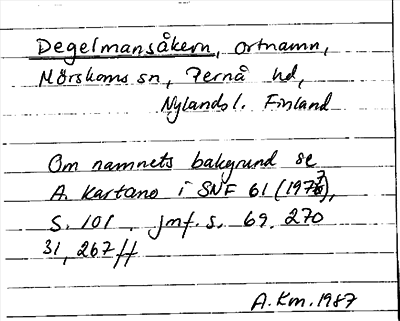 Degelmansåkern, ortnamn,
Mörskoms sn, Pernå hd,
Nylands l. Finland
Om namnets bakgrund se
A. Kartano i SNF 61 (1977),
S. 101. jmf. s. 69. 270
31, 267 ff
A.Km.1987